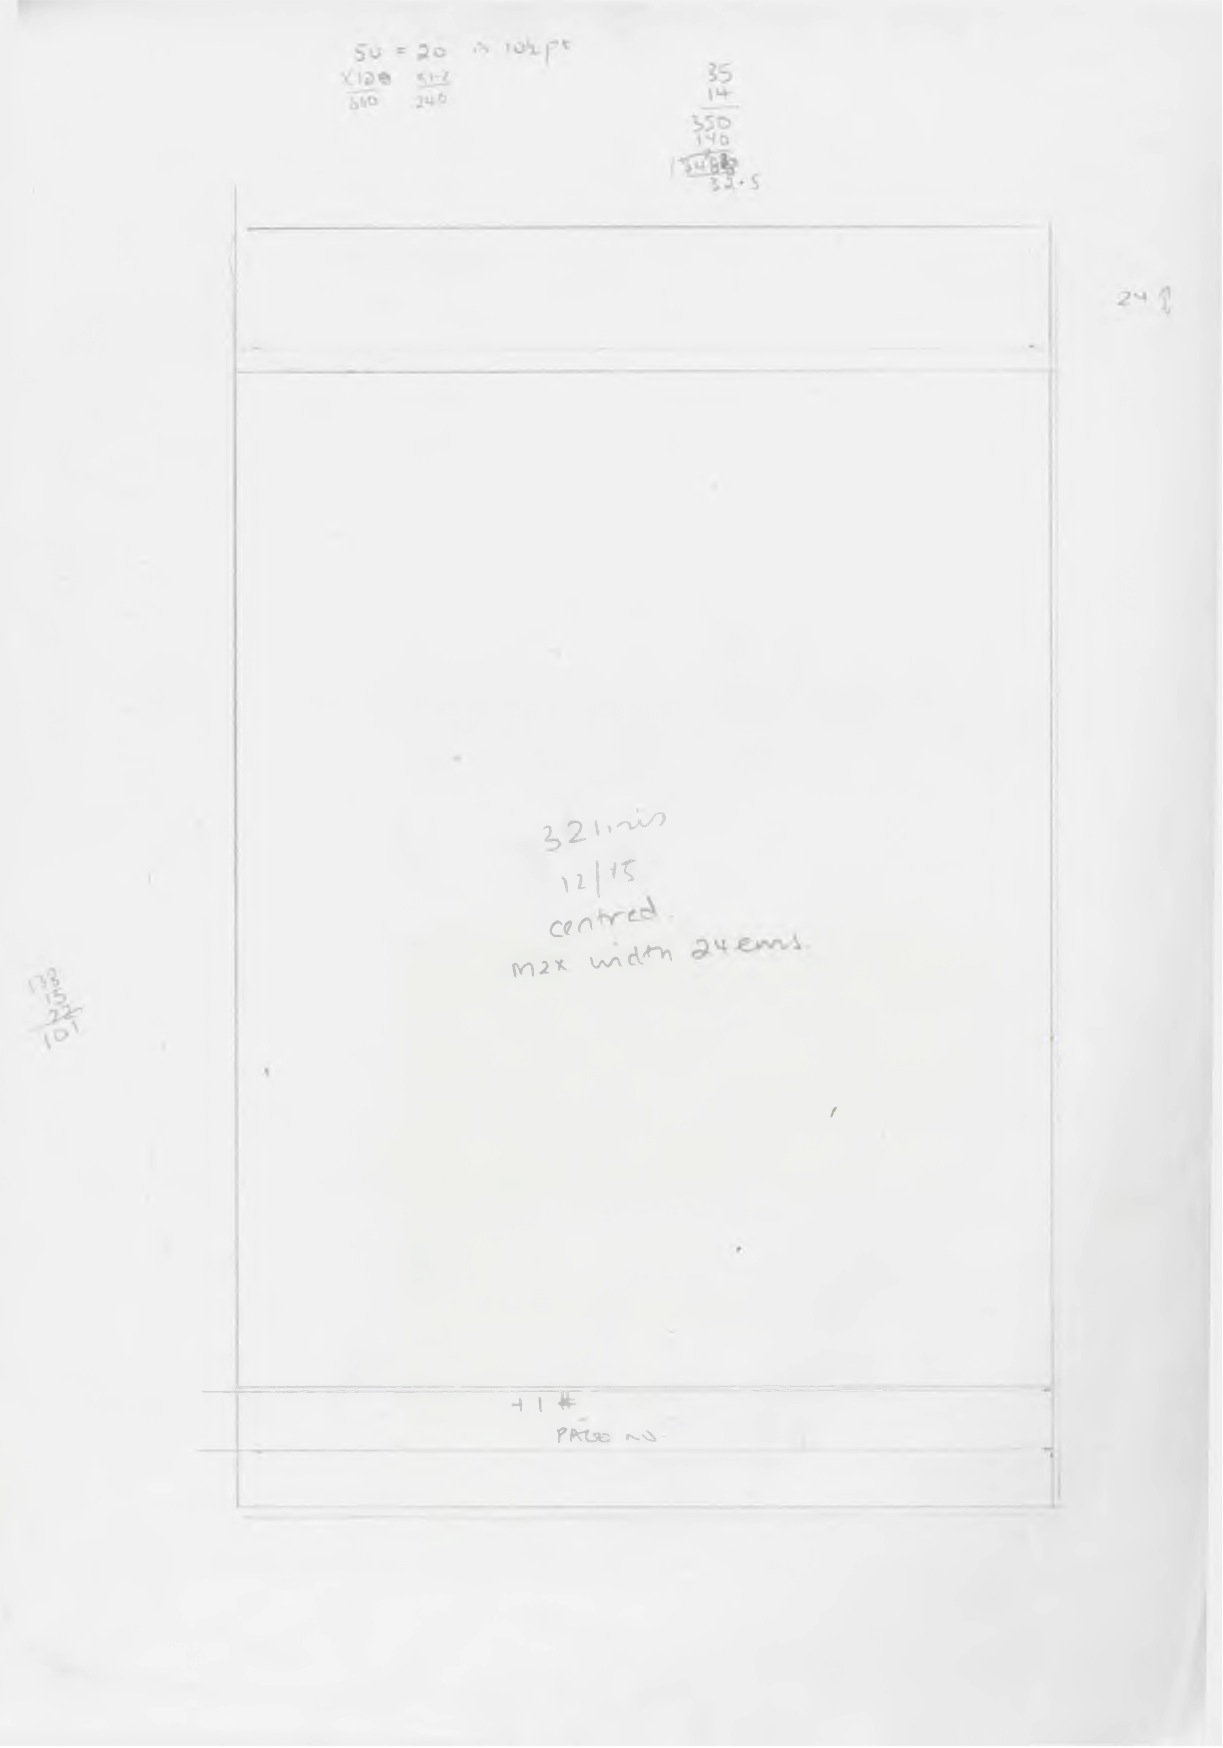 50 = 20 10½ pt
x12
240
35
14
350
140
32.5
24
32 lines
12/15
centred.
max width 24 ems.
15
22
101
+ 1 #
PAGE NO